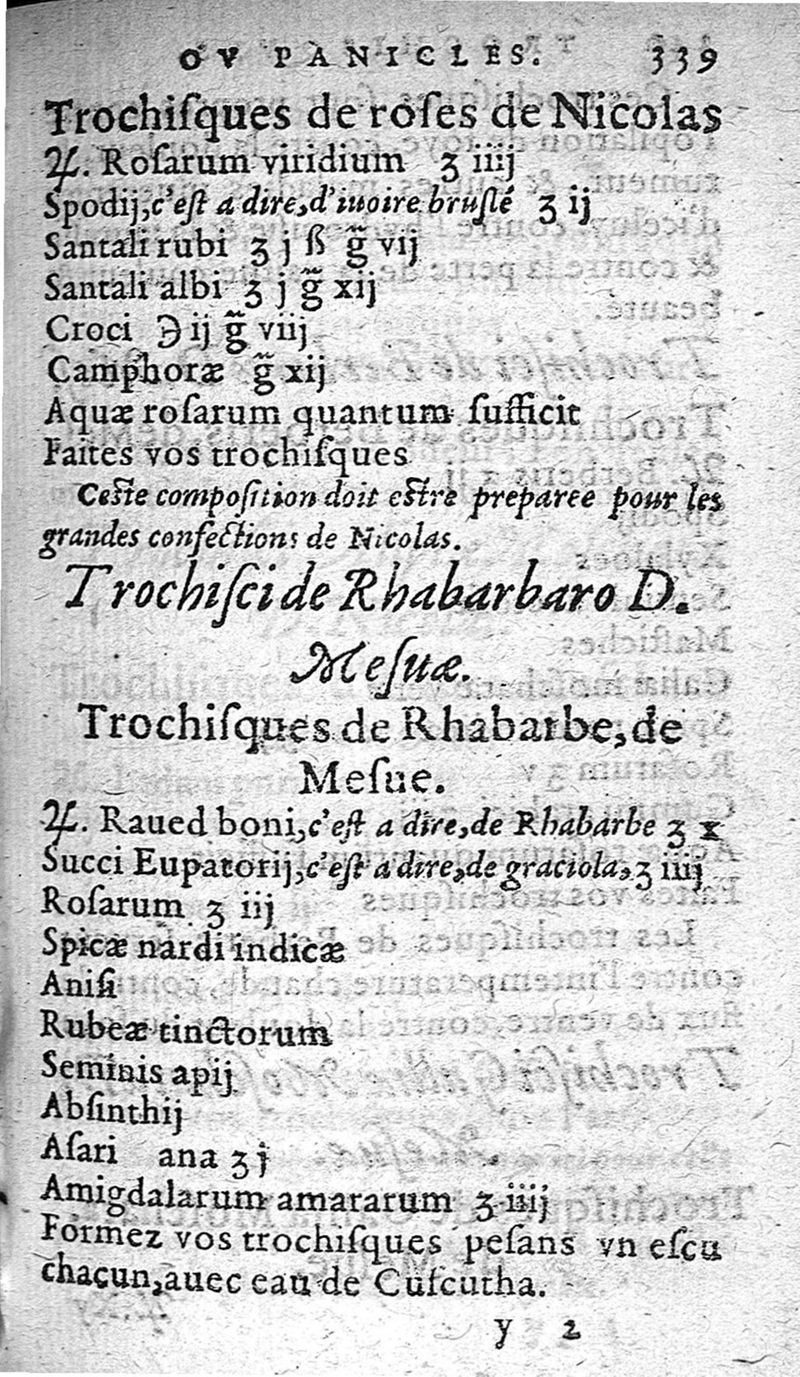 OV PANICLES. 339
Trochiſques de roſes de Nicolas
♃. Roſarum viridium ʒ iiij
Spodij, c'eſt a dire, d'iuoire bruſlé ʒ ij
Santali rubi ʒ j ß g̃ vij
Santali albi ʒ j g̃ xij
Croci ℈ ij g̃ viij
Camphoræ g̃ xij
Aquæ roſarum quantum ſufficit
Faites vos trochiſques
Ceſte compoſition doit eſtre preparee pour les
grandes confections de Nicolas.
Trochiſci de Rhabarbaro D.
Meſuæ.
Trochiſques de Rhabarbe, de
Meſue.
♃. Raued boni, c'eſt a dire, de Rhabarbe ʒ x
Succi Eupatorij, c'eſt a dire, de graciola, ʒ iiij
Roſarum ʒ iij
Spicæ nardi indicæ
Aniſi
Rubeæ tinctorum
Seminis apij
Abſinthij
Aſari ana ʒ j
Amigdalarum amararum ʒ iiij
Formez vos trochiſques peſans vn eſcu
chacun, auec eau de Cuſcutha.
y 2